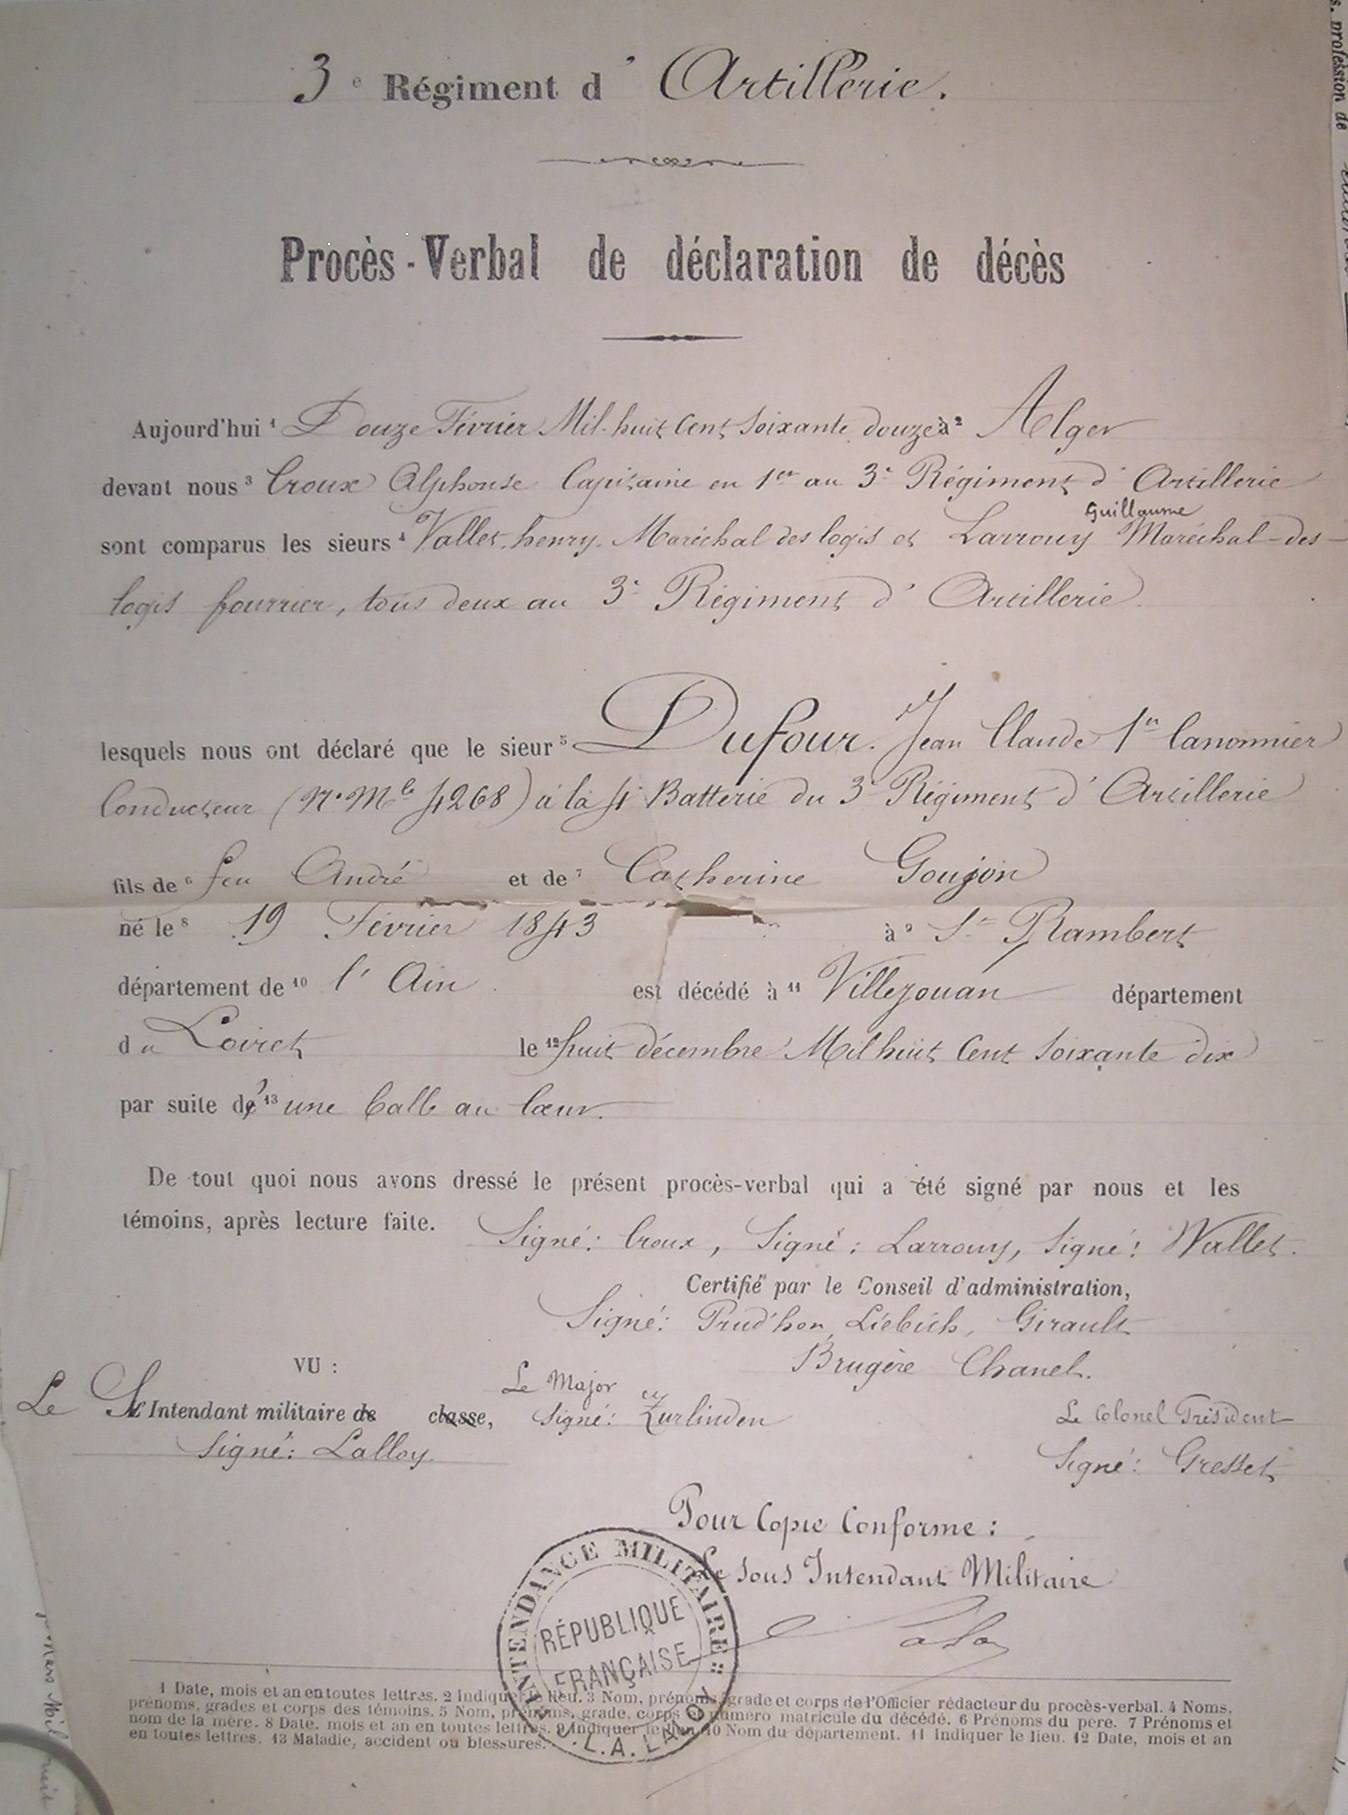 3e Régiment d'Artillerie.
Procès-Verbal de déclaration de décès
Aujourd'hui 1 Douze Février Mil huit Cent Soixante douze à 2 Alger
devant nous 3 Croux Alphonse Capitaine en 1er au 3e Régiment d'Artillerie
Guillaume
sont comparus les sieurs 4 Vallet henry Maréchal des logis et Larrouy Maréchal-des-
logis fourrier, tous deux au 3e Régiment d'Artillerie.
lesquels nous ont déclaré que le sieur 5 Dufour. Jean Claude 1er Canonnier
Conducteur (N° Mle 4268) à la 4e Batterie du 3e Régiment d'Artillerie
fils de 6 feu André et de 7 Catherine Goujon
né le 8 19 Février 1843 à 9 St Rambert
département de 10 l'Ain. est décédé à 11 Villejouan département
du Loiret le 12 huit décembre Mil huit Cent Soixante dix
par suite d' 13 une balle au Cœur.
De tout quoi nous avons dressé le présent procès-verbal qui a été signé par nous et les
témoins, après lecture faite. Signé: Croux, Signé: Larrouy, Signé: Vallet.
Certifié par le Conseil d'administration,
Signé: Prud'hon, Liebich, Girault
VU : Brugère Chanel.
Le Major
Le S Intendant militaire de classe, Signé: Zurlinden Le Colonel Président
Signé: Lalloy Signé: Gresset
Pour Copie Conforme :
Le Sous Intendant Militaire
INTENDANCE MILITAIRE
RÉPUBLIQUE
FRANÇAISE
1 Date, mois et an en toutes lettres. 2 Indiquer le lieu. 3 Nom, prénoms, grade et corps de l'Officier rédacteur du procès-verbal. 4 Noms,
prénoms, grades et corps des témoins. 5 Nom, prénoms, grade, corps et numéro matricule du décédé. 6 Prénoms du père. 7 Prénoms et
nom de la mère. 8 Date, mois et an en toutes lettres. 9 Indiquer le lieu. 10 Nom du département. 11 Indiquer le lieu. 12 Date, mois et an
en toutes lettres. 13 Maladie, accident ou blessures.
s, profession de